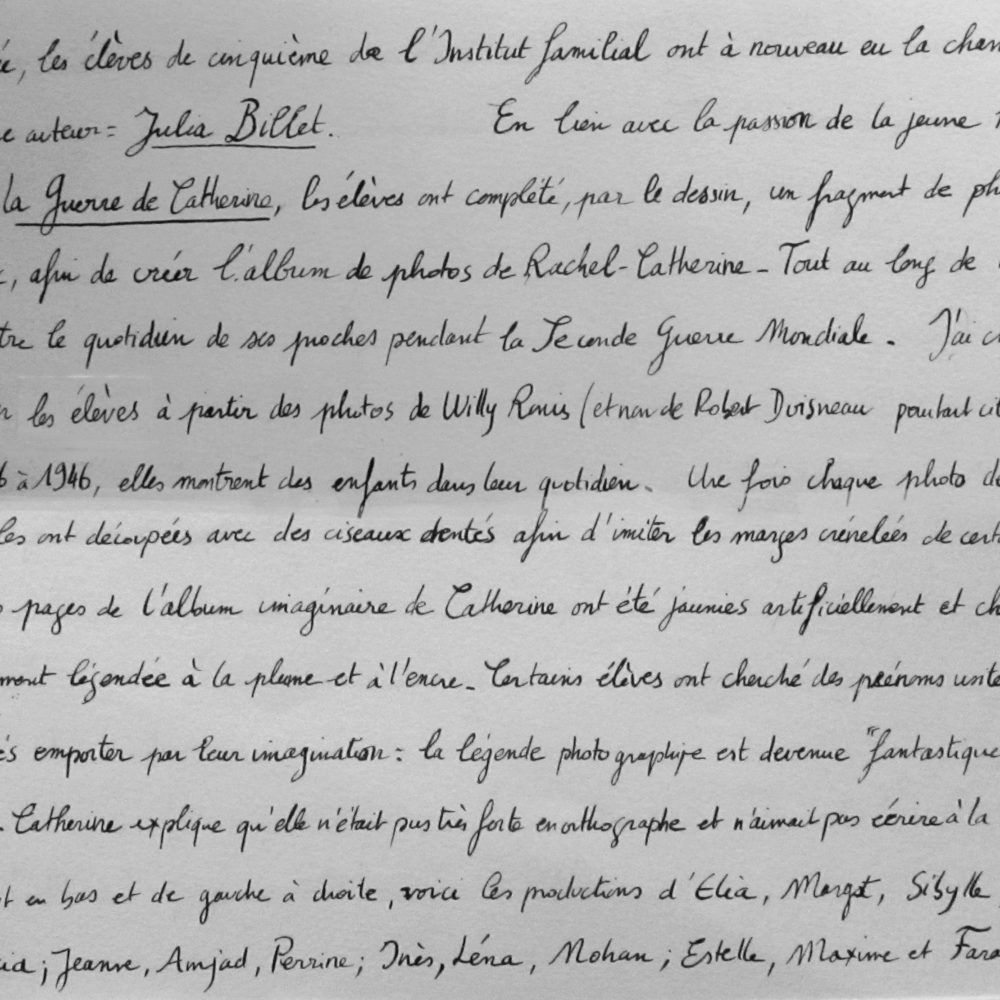 les élèves de cinquième de l'Institut familial ont à nouveau eu la
auteur = Julia Billet. En lien avec la passion de la jeune
la Guerre de Catherine, les élèves ont complété, par le dessin, un fragment de
, afin de créer l'album de photos de Rachel-Catherine - Tout au long de
le quotidien de ses proches pendant la Seconde Guerre Mondiale. J'ai
les élèves à partir des photos de Willy Ronis (et non de Robert Doisneau pourtant
6 à 1946, elles montrent des enfants dans leur quotidien. Une fois chaque photo
les ont découpées avec des ciseaux dentés afin d'imiter les marges crénelées de
pages de l'album imaginaire de Catherine ont été jaunies artificiellement et
ment légendée à la plume et à l'encre - Certains élèves ont cherché des prénoms
és emporter par leur imagination : la légende photographique est devenue "fantastique
. Catherine explique qu'elle n'était pas très forte en orthographe et n'aimait pas écrire à la
en bas et de gauche à droite, voici les productions d'Elia, Margot, Sibylle
; Jeanne, Amjad, Perrine ; Inès, Léna, Mohan ; Estelle, Maxime et